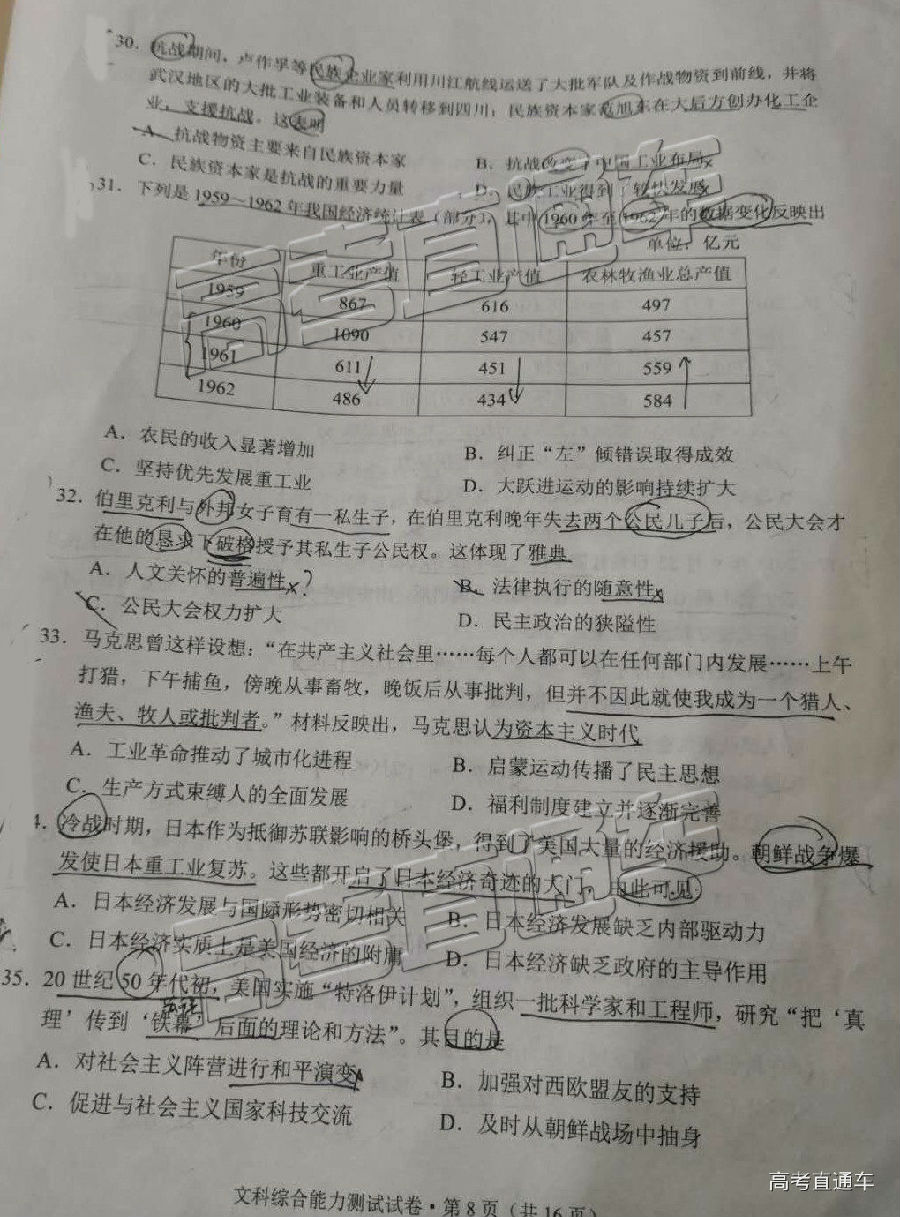 30. 抗战期间，卢作孚等民族企业家利用川江航线运送了大批军队及作战物资到前线，并将
武汉地区的大批工业装备和人员转移到四川；民族资本家范旭东在大后方创办化工企
业，支援抗战。这表明
A. 抗战物资主要来自民族资本家 B. 抗战改变了中国工业布局
C. 民族资本家是抗战的重要力量 D. 民族工业得到了较快发展
31. 下列是1959～1962年我国经济统计表（部分），其中1960年至1962年的数据变化反映出
单位：亿元
年份 重工业产值 轻工业产值 农林牧渔业总产值
1959 867 616 497
1960 1090 547 457
1961 611 451 559
1962 486 434 584
A. 农民的收入显著增加 B. 纠正“左”倾错误取得成效
C. 坚持优先发展重工业 D. 大跃进运动的影响持续扩大
32. 伯里克利与外邦女子育有一私生子，在伯里克利晚年失去两个公民儿子后，公民大会才
在他的恳求下破格授予其私生子公民权。这体现了雅典
A. 人文关怀的普遍性 ? B. 法律执行的随意性
C. 公民大会权力扩大 D. 民主政治的狭隘性
33. 马克思曾这样设想：“在共产主义社会里……每个人都可以在任何部门内发展……上午
打猎，下午捕鱼，傍晚从事畜牧，晚饭后从事批判，但并不因此就使我成为一个猎人、
渔夫、牧人或批判者。”材料反映出，马克思认为资本主义时代
A. 工业革命推动了城市化进程 B. 启蒙运动传播了民主思想
C. 生产方式束缚人的全面发展 D. 福利制度建立并逐渐完善
4. 冷战时期，日本作为抵御苏联影响的桥头堡，得到了美国大量的经济援助。朝鲜战争爆
发使日本重工业复苏。这些都开启了日本经济奇迹的大门。由此可见
A. 日本经济发展与国际形势密切相关 B. 日本经济发展缺乏内部驱动力
C. 日本经济实质上是美国经济的附庸 D. 日本经济缺乏政府的主导作用
35. 20世纪50年代初，美国实施“特洛伊计划”，组织一批科学家和工程师，研究“把‘真
理’传到‘铁幕’后面的理论和方法”。其目的是
A. 对社会主义阵营进行和平演变 B. 加强对西欧盟友的支持
C. 促进与社会主义国家科技交流 D. 及时从朝鲜战场中抽身
文科综合能力测试试卷·第8页（共16页）
高考直通车
高考直通车
高考直通车